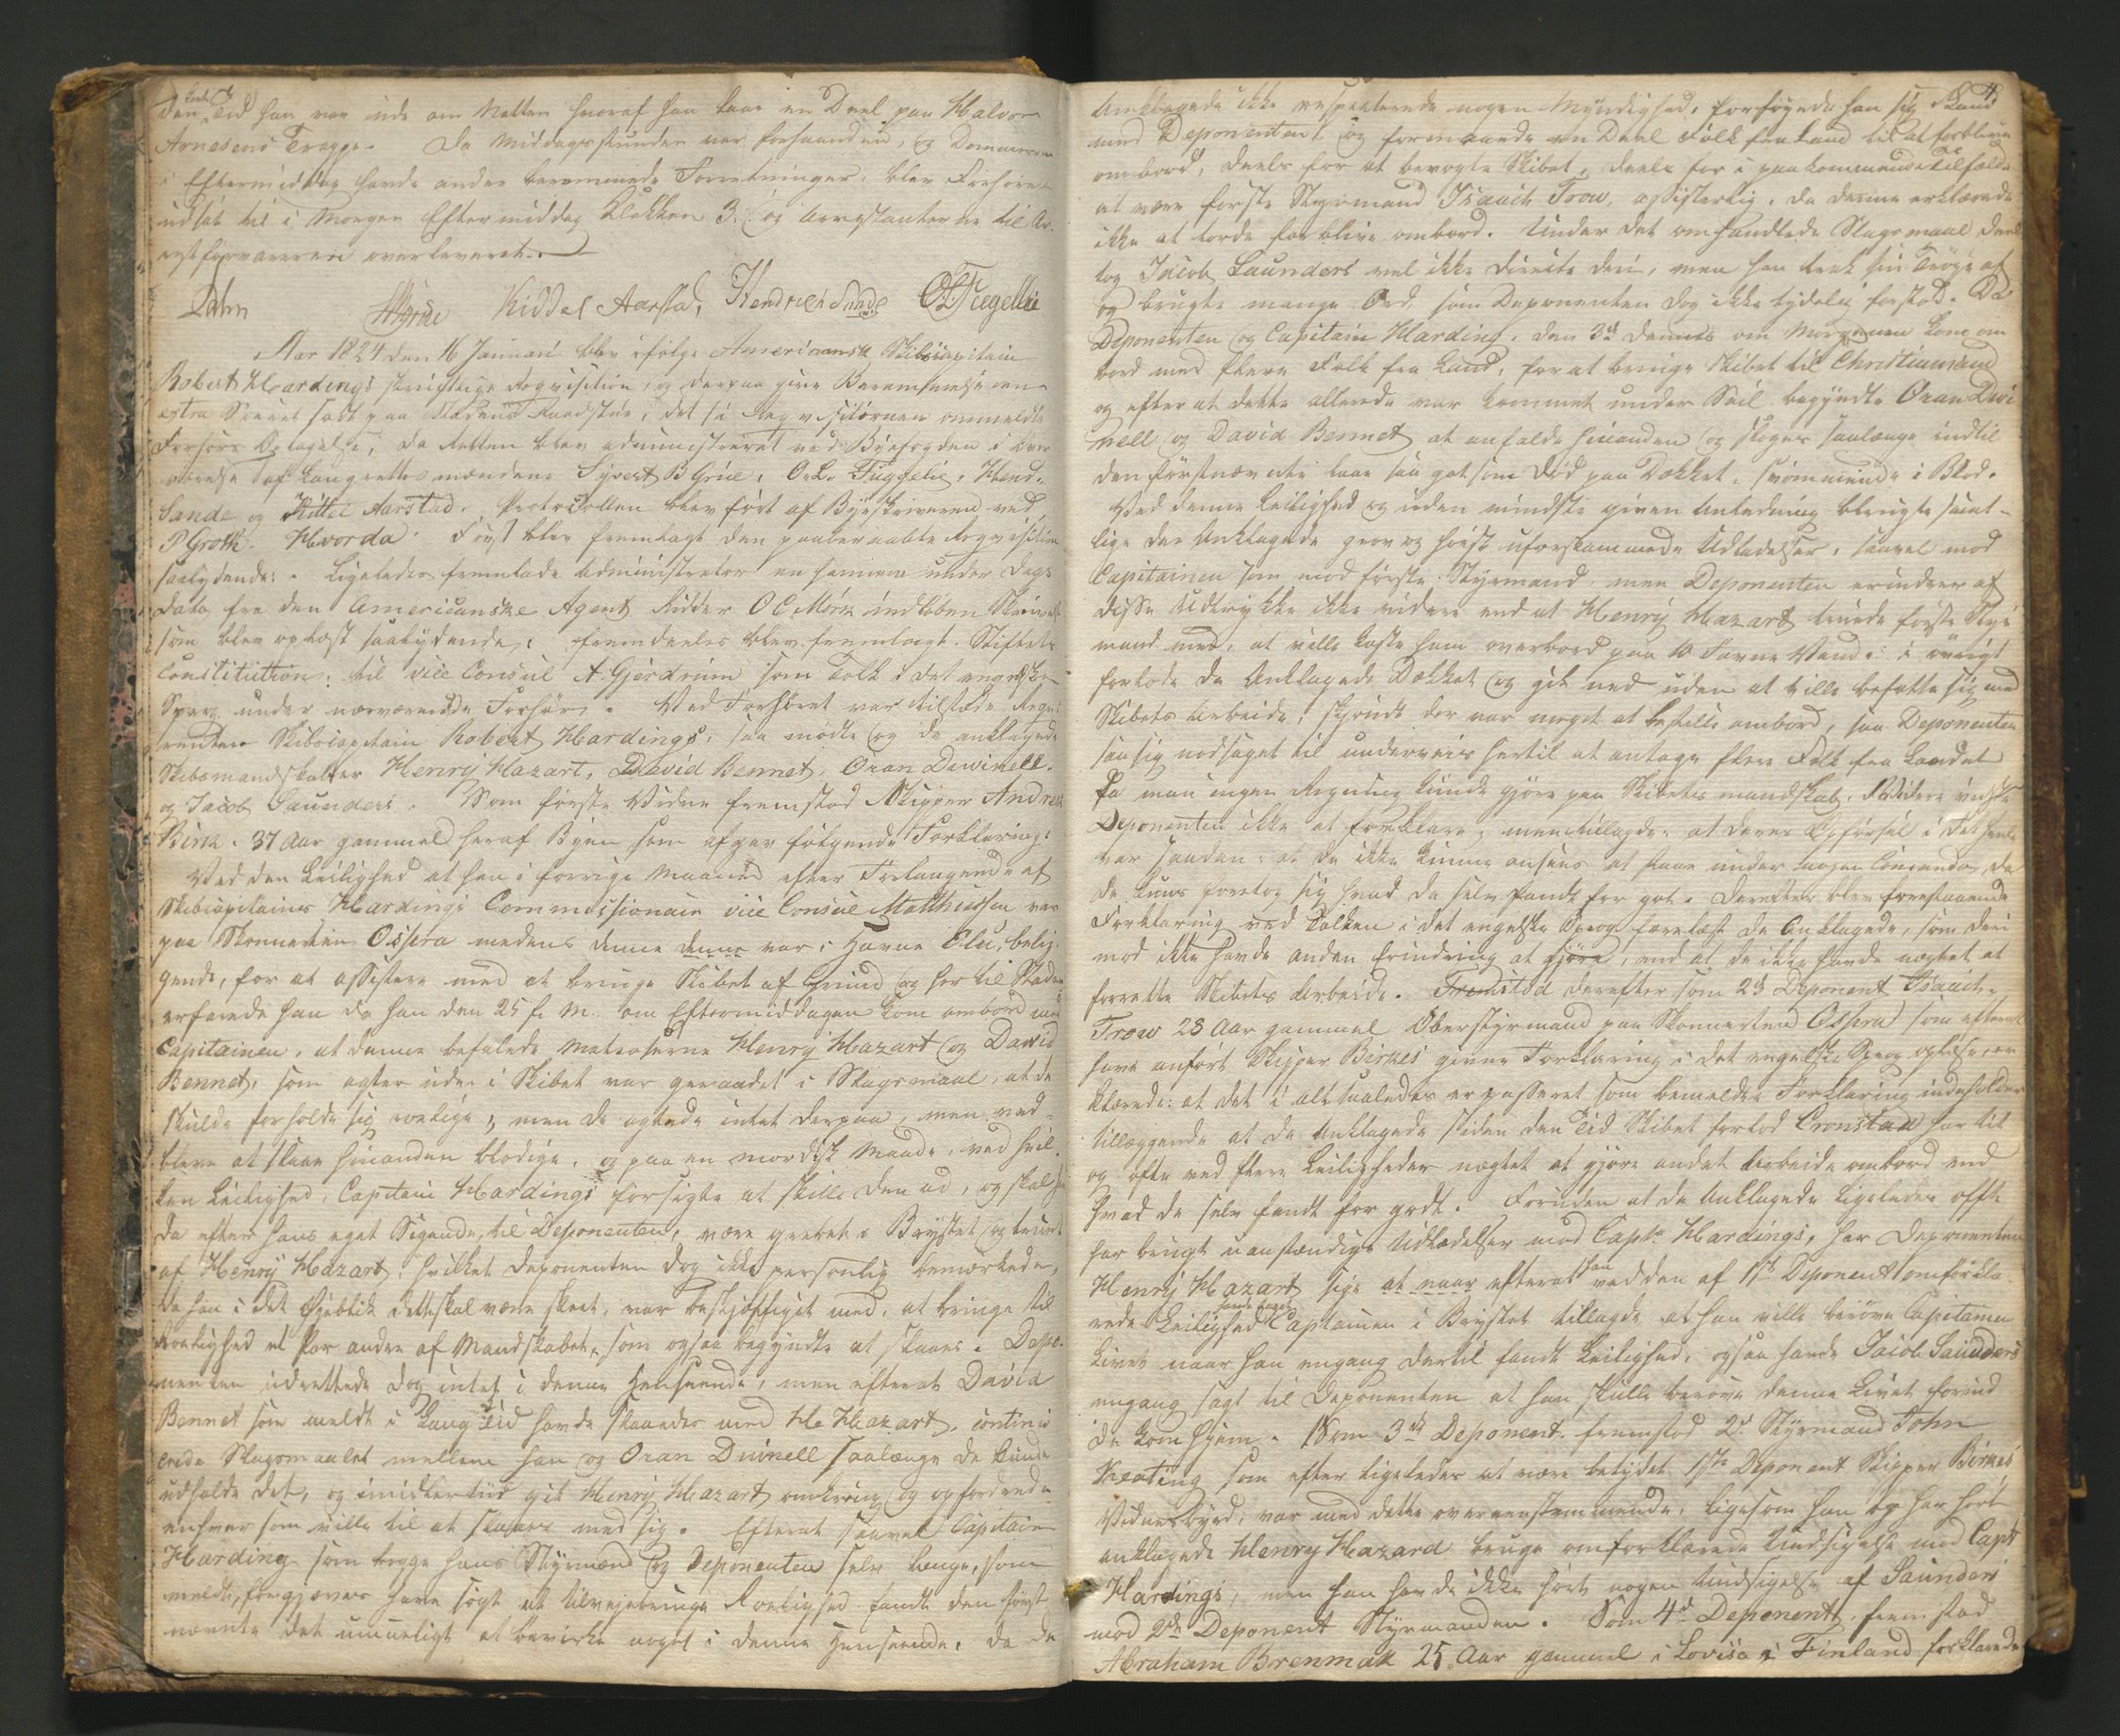 den korte Tid han var inde om Natten hvoraf han laae en Deel paa Halvor
Arnesens Trappe. Da Middagsstunden var forhaanden, og Dommeren
i Eftermiddag havde andre berammede Forretninger, blev Forhøret
udsat til i Morgen Eftermiddag Klokken 3. og Arrestanterne til Ar-
restforvareren overleveret.
Dahm SBGrue Kittel Aarstad, Hendrich Sande OLTuggelie
Aar 1824 den 16 Januari blev ifølge Americansk Skibscapitain
Robert Hardings skriftlige Reqvisition, og derpaa given Berammelse en
extra Sværet sadt paa Stadens Raadstue, det fra Reqvisitionen anmeldte
Forhørs Optagelse, da Retten blev administreret ved Byefogden i Over-
værelse af Laugrettesmændene Syvert BGrue, O. L. Tuggelie, Hend.
Sande og Kittel Aarstad. Protocollen blev ført af Byeskriveren ved
P Groth. Hvorda Først blev fremlagt den paaberaabte Reqvisition
saalydende: Ligeledes fremlade Administrator en hannem under Dags
Dato fra den Americanske Agent Ridder O C Mørch indløben Skrivelse
som blev oplæst saalydende, fremdeeles blev fremlagt Stiftets
Constitution til vice Consul A Gjerdrum som Tolk i det engelske
Sprog under nærværende Forhør. Ved Forhøret var tilstæde Reqvi-
renten Skibscapitain Robert Hardings, saa mødte og de anklagede
Skibsmandskaber Henry Hazart, David Bennet, Oran Dwinell.
og Jacob Saunders. Som første Vidne fremstod Skipper Andreas
Birch. 37 Aar gammel heraf Byen som afgav følgende Forklaring:
Ved den Leilighed at han i forrige Maaned efter Forlangende af
Skibscapitainer Hardings Commissionair vice Consul Matthiessen var
paa Skonnerten Ospra medens denne denne var i Havne Elv, belig-
gende, for at assistere med at bringe Skibet af Grund og her til Staden
erfarede han da han den 25 f. M. om Eftermiddagen kom ombord med
Capitainen, at denne befalede Matroserne Henry Hazart og David
Bennet, som agter ude i Skibet var geraadet i Slagsmaal, at de
skulde forholde sig roelige, men de agtede intet derpaa, men ved-
bleve at slaae hinanden blodige, og paa en mordisk Maade, ved hvil-
ken Leilighed, Capitain Hardings forsøgte at skille den ad, og skal han
da efter hans eget Sigende, til Deponenten, være grebet i Brystet og truet
af Henry Hazart, hvilket Deponenten dog ikke personlig bemærkede,
da han i det Øieblik dette skal være skeet, var beskjæftiget med, at bringe til
Roelighed et Par andre af Mandskabet, som ogsaa begyndte at slaaes. Depo-
nenten udrettede dog intet i denne Henseende, men efterat David
Bennet som meldt i lang Tid havde slaaedes med H. Hazart, continu-
erede Slagsmaalet mellem han og Oran Duinell saalænge de kunde
udholde det, og imidlertiid gik Henry Hazart omkring og opfordrede
enhver som ville til at slaaes med sig. Efterat saavel Capitain
Harding som begge hans Styrmænd og Deponenten selv længe, som
meldt, forgjæves have søgt at tilvejebringe Roelighed fandt den først-
nævnte det umueligt at bevirke noget i denne Henseende, da de
4
Anklagede ikke respecterede nogen Myndighed, forføyede han sig i Land
med Deponenten og formaaede en Deel Folk fra Land til at forblive
ombord, deels for at bevogte Skibet, deels for i paakommende Tilfælde
at være første Styrmand Isaach Trow, assisterlig, da denne erklærede
ikke at torde forblive ombord. Under det omhandlede Slagsmaal deel-
tog Jacob Saunders vel ikke directe deri, men han trak sin Trøye af
og brugte mange Ord som Deponenten dog ikke tydelig forstod. Da
Deponenten og Capitain Harding, den 3d dennes om Morgenen kom om
bord med flere Folk fra Land, for at bringe Skibet til Christiansand
og efter at dette allerede var kommet under Seil begyndte Oran Dwi
nell og David Bennet at anfalde hinanden og sloges saalænge indtil
den førstnævnte laae saa got som død paa Dækket, svømmende i Blod.
Ved denne Leilighed og uden mindste given Anledning brugte samt-
lige de Anklagede grove og høist uforskammede Udladelser, saavel mod
Capitainen som mod første Styrmand, men Deponenten erindrer af
disse Udtrykke ikke videre end at Henry Hazart truede første Styr
mand med, at ville kaste ham overbord paa 10 Favne Vand i øvrigt
forlode de Anklagede Dækket og gik ned uden at ville befatte sig med
Skibets Arbeide, skjøndt der var meget at bestille ombord, saa Deponenten
saae sig nødsaget til underveis hertil at antage flere Folk fra Landet
da man ingen Regning kunde gjøre paa Skibets mandskab. Videre vidste
Deponenten ikke at forklare, men tillagde at deres Opførsel i det hele
var saadan at de ikke kunne ansees at staae under nogen Comando, da
de kuns foretog sig hvad de selv fandt for got. Derefter blev forestaaende
Forklaring ved Tolken i det engelske Sprog forelæst de Anklagede, som deri
mod ikke havde anden Erindring at gjøre, end at de ikke havde nægtet at
forrette Skibets Arbeide. Fremstod derefter som 2d Deponent Isaach
Trow 28 Aar gammel Overstyrmand paa Skonnerten Ospra som efterat
have anhørt Skipper Birkes givne Forklaring i det engelske Sprog oplæse, er
klærede: at det i alt saaledes er passeret som bemeldte Forklaring indeholder
tillæggende at de Anklagede siden den Tid Skibet forlod Cronstad har tit
og ofte ved flere Leiligheder nægtet at gjøre andet Arbeide ombord end
hvad de selv fandt for godt. Foruden at de Anklagede ligeledes offte
har brugt uanstændige Udladelser mod Captn Hardings, har Deponenten
Henry Hazart sige at naar efterat han ved den af 1ste Deponent omforkla-
rede Leilighed havde taget Captainen i Brystet tillagde at han ville berøve Capitainen
Livet naar han engang dertil fandt Leilighed, ogsaa havde Jacob Saunders
engang sagt til Deponenten at han skulle berøve denne Livet forind
de kom hjem. Som 3die Deponent fremstod 2d Styrmand John
Keating som efter ligeledes at være betydet 1ste Deponent Skipper Birkes
Vidnesbyrd, var med dette overeenstemmende, ligesom han og har hørt
anklagede Henry Hazard bruge omforklarede Undsigelse mod Capt
Hardings, men han havde ikke hørt nogen Undsigelse af Saunders
mod 2de Deponent Styrmanden. Som 4d Deponent, fremstod
Abraham Brenmak 25 Aar gammel i Lovisa i Finland forklarede